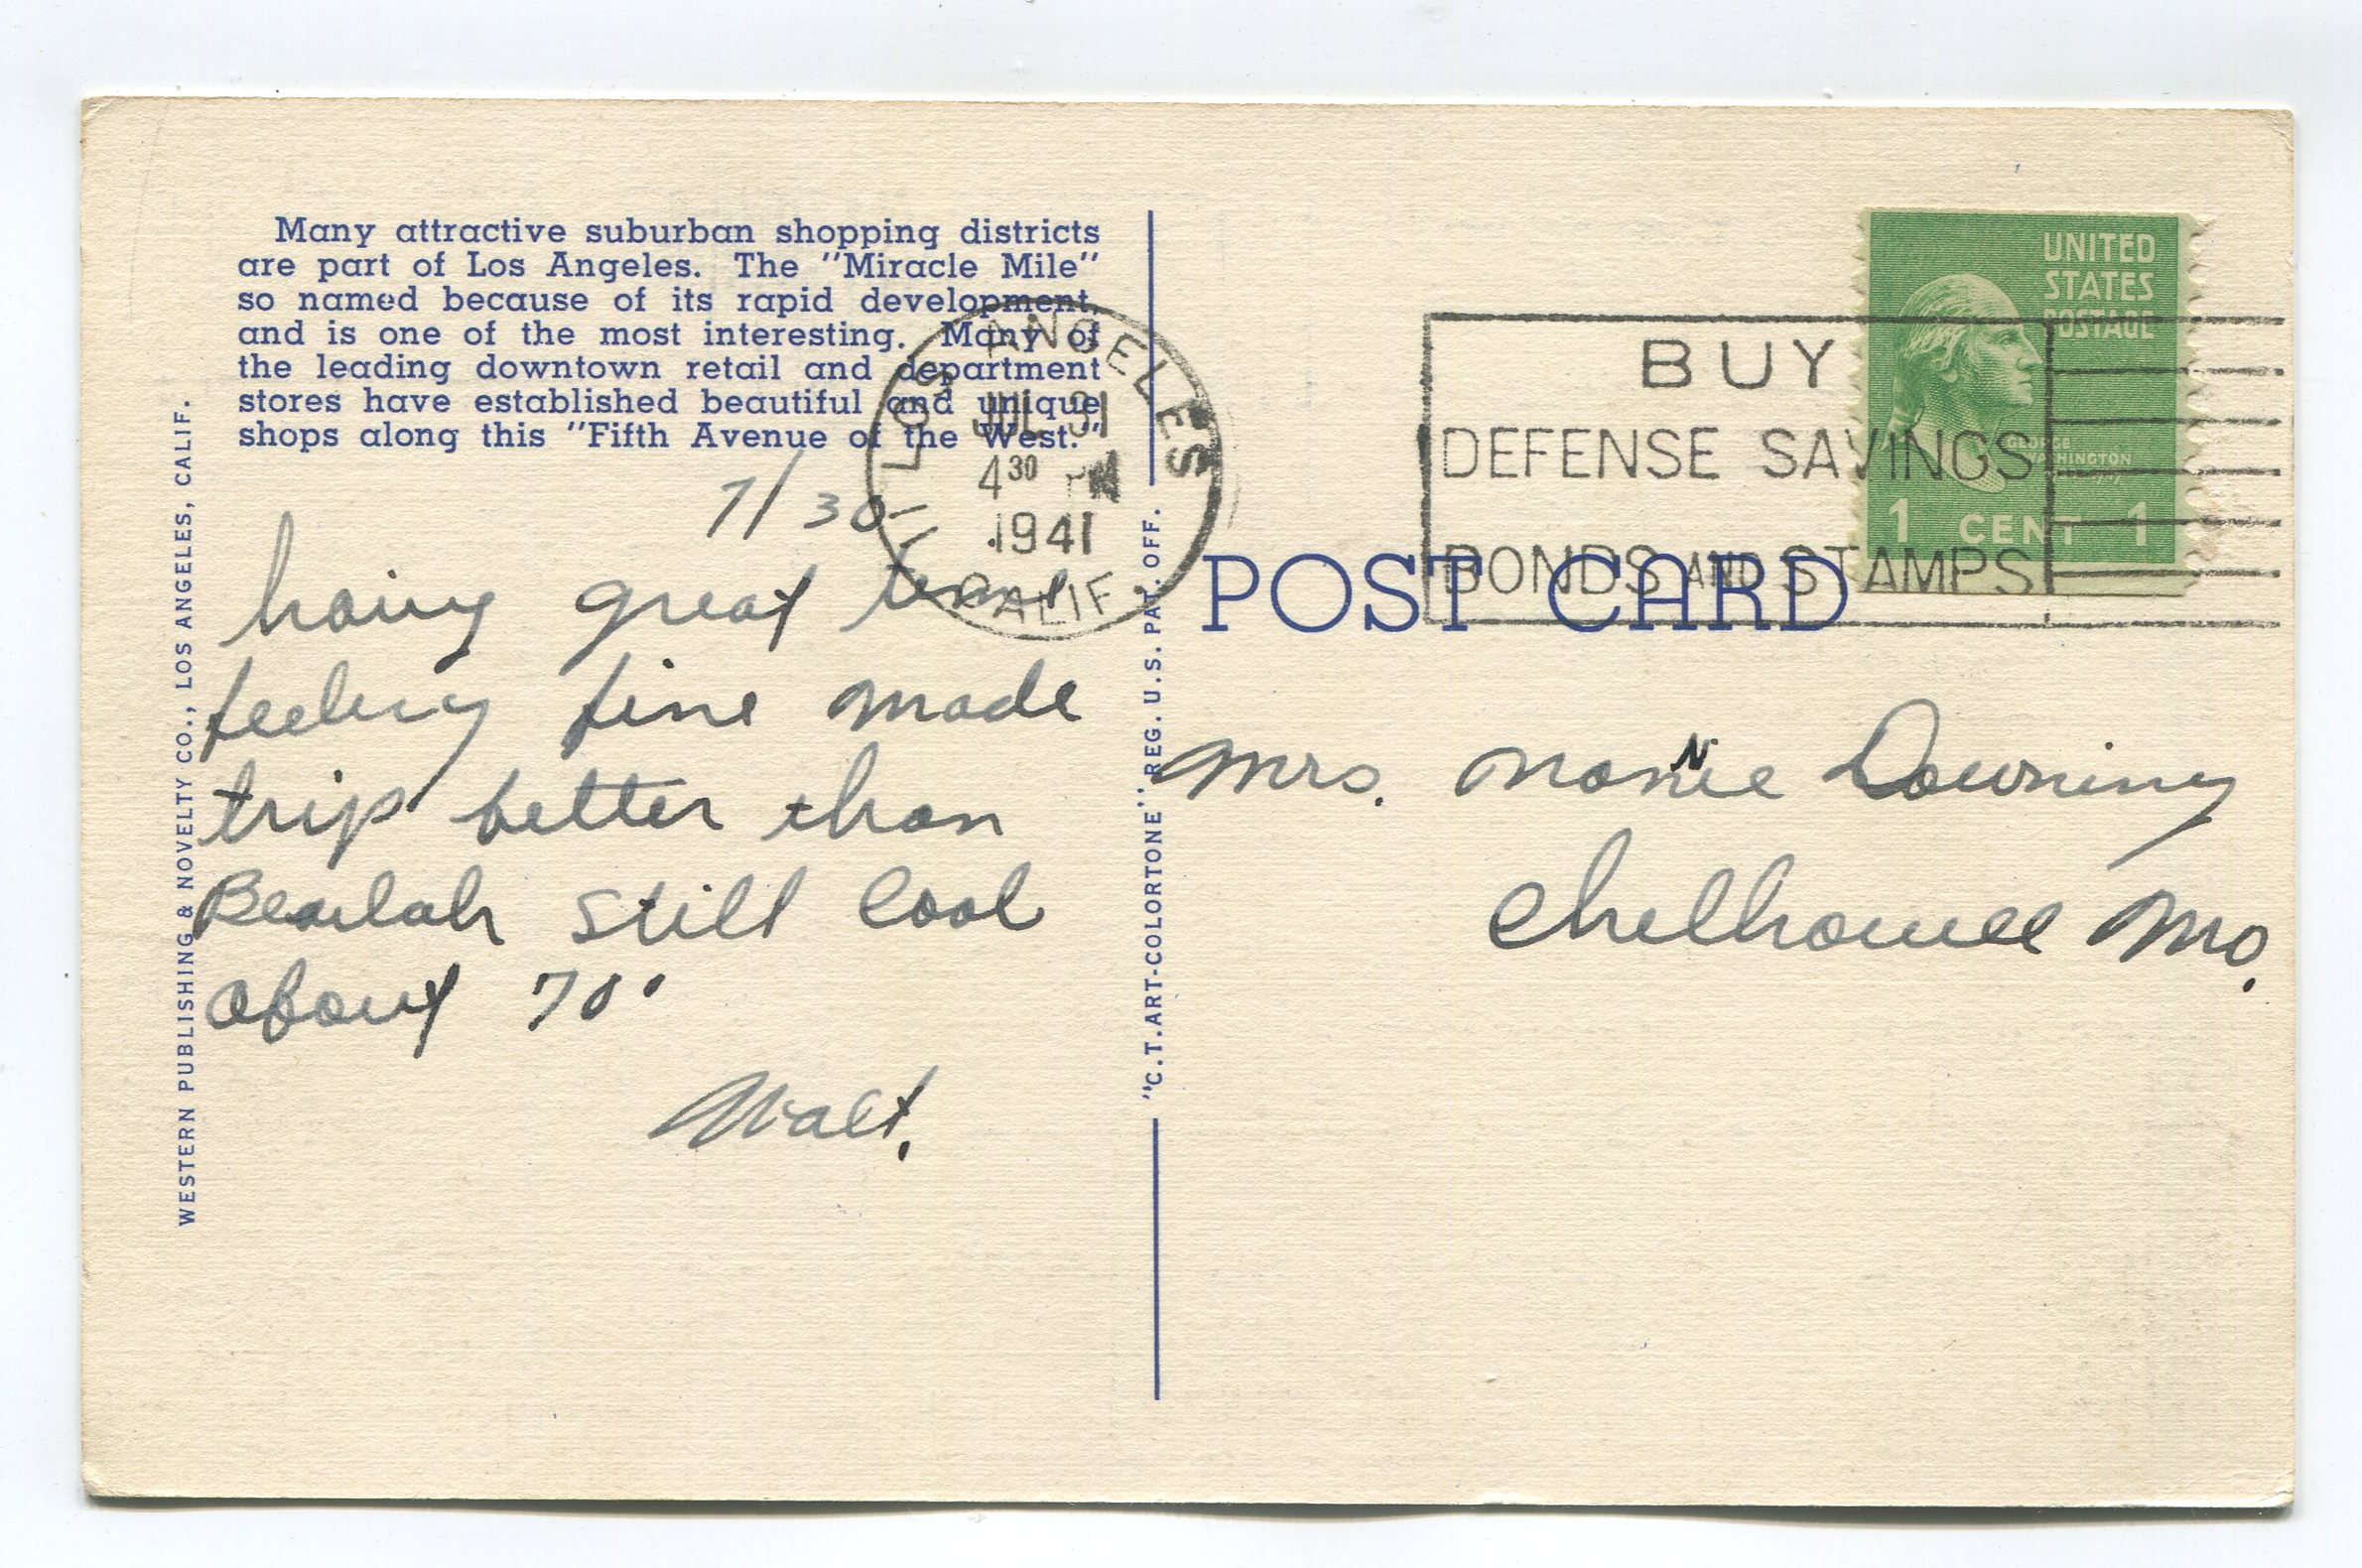 Many attractive suburban shopping districts
are part of Los Angeles. The "Miracle Mile"
so named because of its rapid development,
and is one of the most interesting. Many of
the leading downtown retail and department
stores have established beautiful and unique
shops along this "Fifth Avenue of the West."
7/30
having great time
feeling fine made
trip better than
Beaulah still cool
about 70°
Walt.
WESTERN PUBLISHING & NOVELTY CO., LOS ANGELES, CALIF.
LOS ANGELES
JUL 31
4 30 PM
1941
CALIF.
"C.T.ART-COLORTONE" REG. U.S. PAT. OFF.
POST CARD
BUY
DEFENSE SAVINGS
BONDS AND STAMPS
UNITED
STATES
POSTAGE
GEORGE
WASHINGTON
1 CENT 1
Mrs. Downing
Chelhowee Mo.